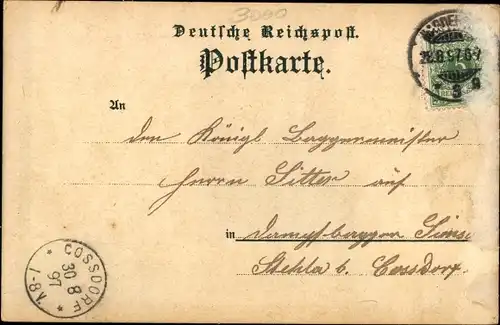 3090
Deutsche Reichspost.
Postkarte.
28.8.97.6-7
An
den Königl Baggermeister
Herrn Sitter auf
in Dampfbagger
Stehla b. Cossdorf
COSSDORF
30 8
97
7-8 N